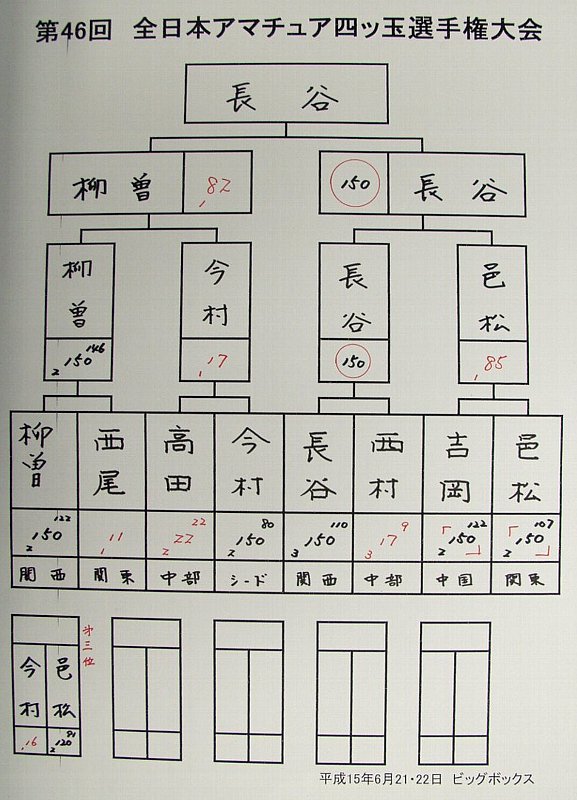 第46回 全日本アマチュア四ッ玉選手権大会
長谷
柳曽 82 150 長谷
柳曽 今村 長谷 邑松
2 150 146 1 17 150 1 85
柳曽 西尾 高田 今村 長谷 西村 吉岡 邑松
2 150 122 1 11 2 22 22 2 150 80 3 150 110 3 17 9 2 「150」 122 2 「150」 107
関西 関東 中部 シード 関西 中部 中国 関東
今村 邑松 第三位
1 16 2 120 91
平成15年6月21・22日 ビッグボックス